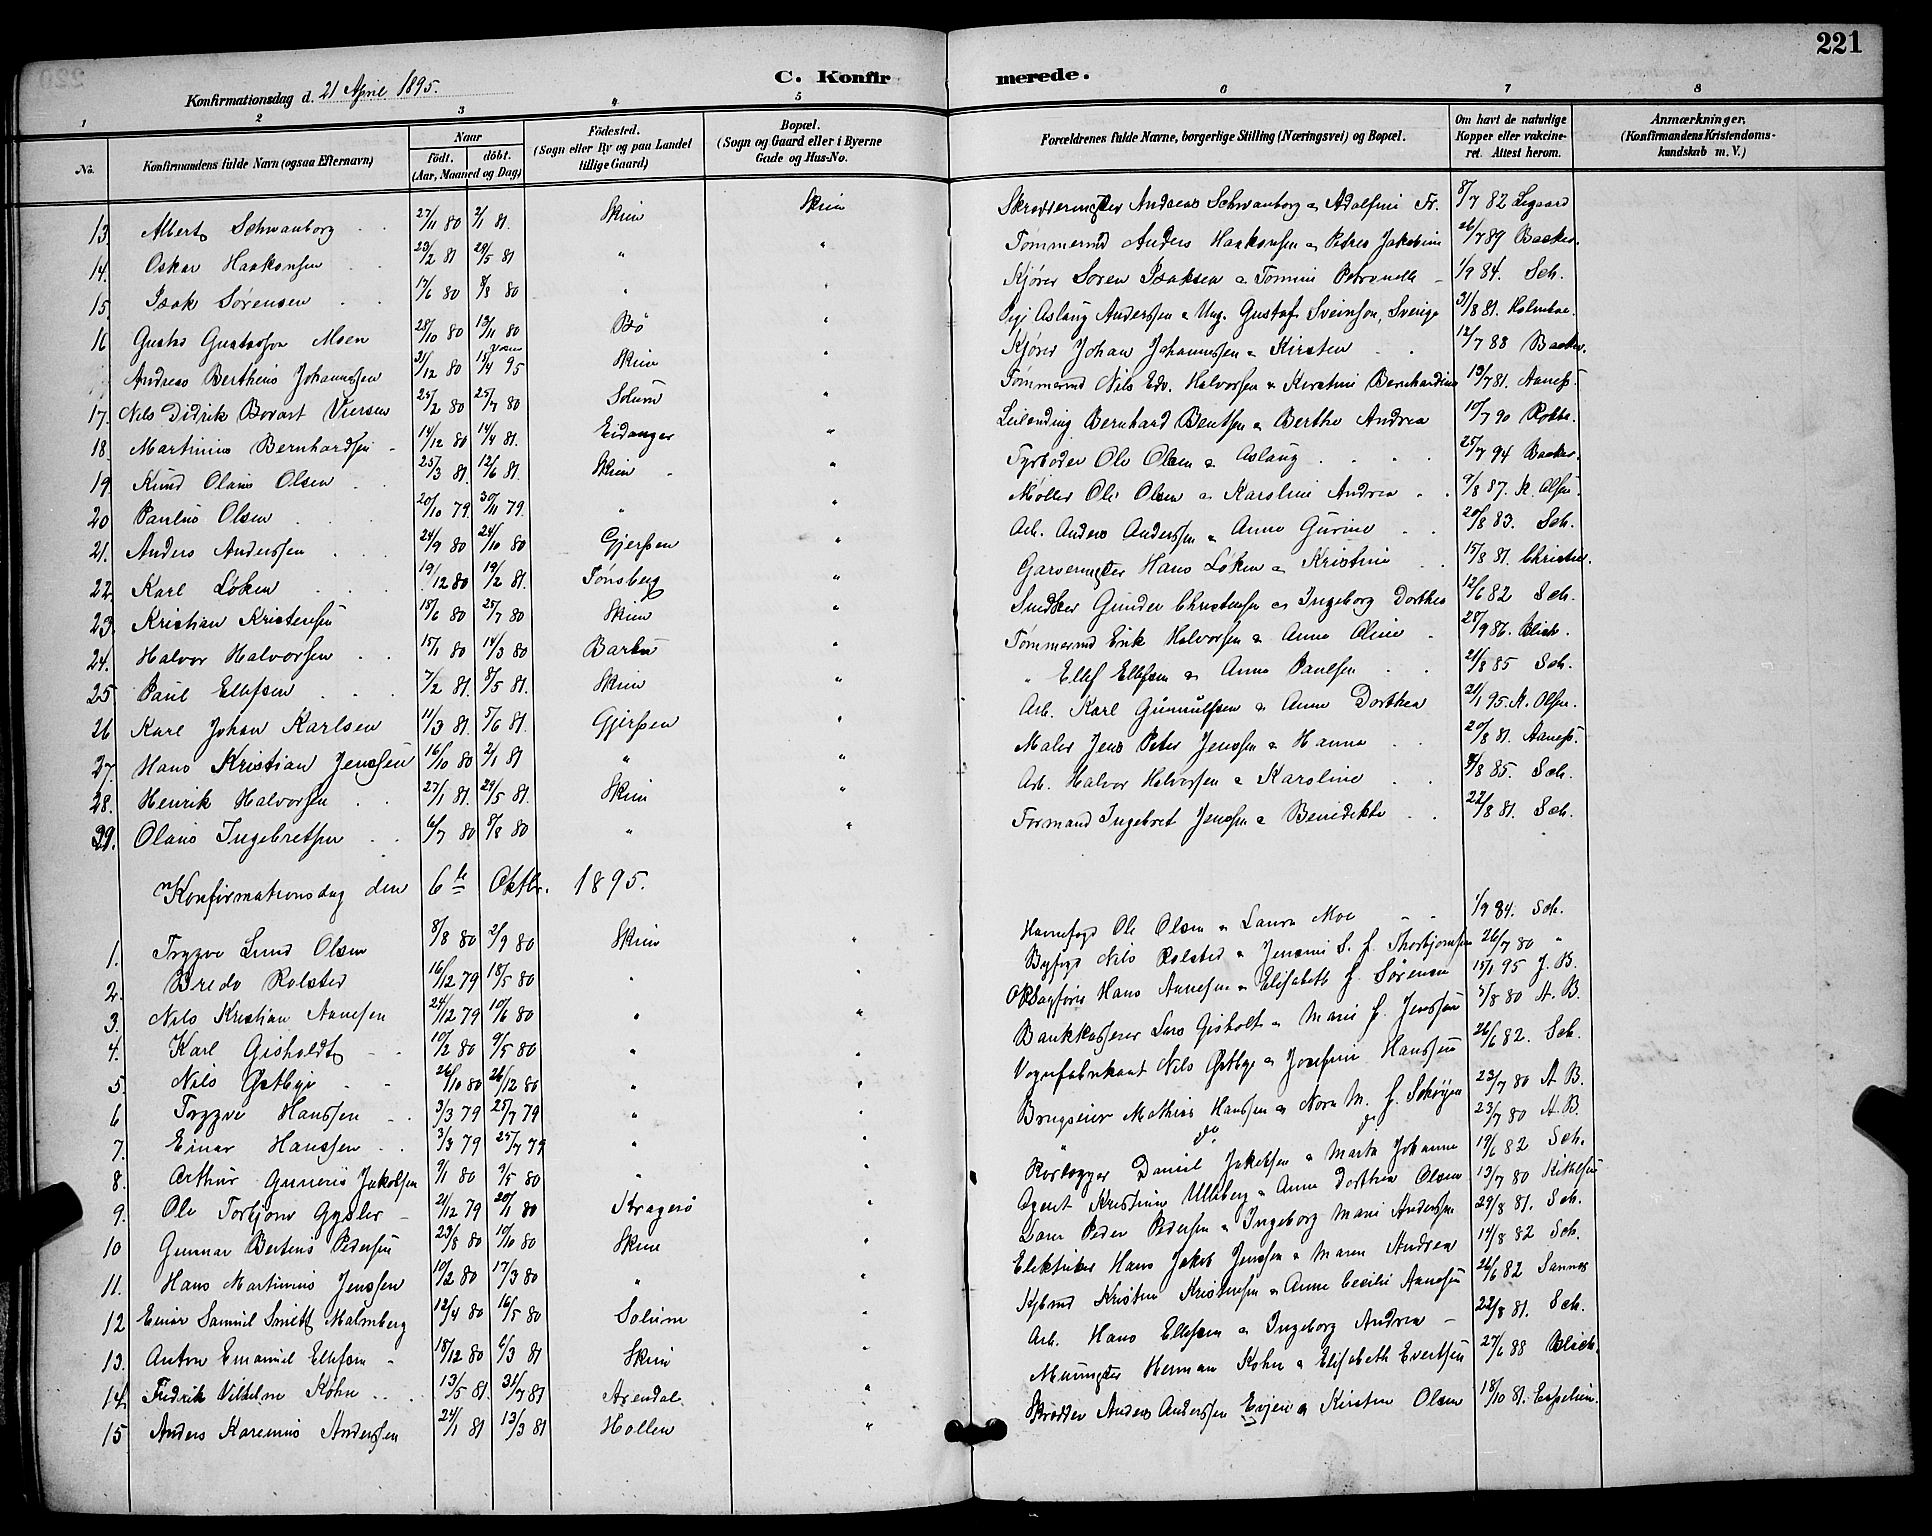 221
C. Konfirmerede.
Konfirmationsdag d. 21 April 1895.
1 2 3 4 5 6 7 8
No. Konfirmandens fulde Navn (ogsaa Efternavn) Naar födt. döbt. (Aar, Maaned og Dag) Födested. (Sogn eller By og paa Landet tillige Gaard) Bopæl. (Sogn og Gaard eller i Byerne Gade og Hus-No. Forældrenes fulde Navne, borgerlige Stilling (Næringsvei) og Bopæl. Om havt de naturlige Kopper eller vakcineret. Attest herom. Anmærkninger. (Konfirmandens Kristendomskundskab m. V.)
13. Albert Schwanborg 27/11 80 2/1 81. Skien Skien Skræddermester Andreas Schwanborg & Adolfine Fr. 8/7 82 Legaard
14. Oskar Haakonsen 23/2 81 29/5 81 " " Tømmermd Anders Haakonsen & Petrea Jakobine 26/7 89 Backer.
15. Isak Sørensen 17/6 80 8/8 80 " " Kjører Søren Isaksen & Tomine Petronelle 1/9 84. Sch.
16 Gustav Gustavson Moen 28/10 80 13/11 80 Bö " Pige Aslaug Anderssen & Ung. Gustaf Sveinson, Sverige 31/8 81. Holmboe.
Andreas Berthius Johannssen 31/12 80 15/4 95 Skien " Kjører Johan Johannssen & Kirsten 12/7 88 Backer.
17. Nils Didrik Bovart Iversen 25/2 80 25/7 80 Solum " Tømmermd Nils Edv. Halvorsen & Kirstine Bernhardine 19/7 81. Aaness.
18. Martinius Bernhardsen 14/12 80 14/4 81. Eidanger " Leilending Bernhard Bentsen & Berthe Andrea 10/7 90
19. Knud Olaus Olsen 25/3 81 12/6 81. Skien " Fyrbøder Ole Olsen & Aslaug 25/7 94 Backer.
20 Paulus Olsen 20/10 79. 30/11 79. " " Møller Ole Olsen & Karoline Andrea 9/8 87. K. Olsen.
21. Anders Anderssen 24/9 80 24/10 80 Gjerpen " Arb. Anders Anderssen & Anne Gurine 20/8 83. Sch.
22 Karl Löken 19/12 80 19/2 81. Tønsberg " Garvermester Hans Löken & Kristine 15/8 81. Christie.
23. Kristian Kristensen 18/6 80 25/7 80 Skien " Snedker Gunder Christensen & Ingeborg Dorthea 12/6 82 Sch.
24. Halvor Halvorsen 15/1 80 14/3 80 Barbu " Tømmermd Erik Halvorsen & Anne Oline 28/9 86. Blich.
25 Paul Ellefsen 7/2 81. 8/5 81. Skien " " Ellef Ellefsen & Anne Paulsen 21/8 85 Sch.
26 Karl Johan Karlsen 11/3 81. 5/6 81. Gjerpen " Arb. Karl Gunnulfsen & Anne Dorthea 21/1 95. K. Olsen.
27 Hans Kristian Jenssen 16/10 80 2/1 81 " " Maler Jens Peter Jenssen & Hanne 20/8 81. Aaness.
28. Henrik Halvorsen 27/1 81. 29/5 81. Skien " Arb. Halvor Halvorsen & Karoline 8/8 85. Sch.
29. Olaus Ingebretsen 6/7 80 8/8 80 " " Formand Ingebret Jenssen & Benedikte 22/8 81. Sch.
Konfirmationsdag den 6te Oktbr. 1895.
1. Trygve Lund Olsen 8/8 80 2/9 80 Skien " Havnefogd Ole Olsen & Laura Moe 1/9 84. Sch.
2. Bredo Rolsted 16/12 79 18/5 80 " Byfogd Nils Rolsted & Jensine S. f. Thorbjørnsen 26/7 80 "
3. Nils Kristian Aanesen 24/12 79 10/6 80 " " O.R.Sagfører Hans Aanesen & Elisabeth f. Sørensen 15/1 95 J. B.
4. Karl Gisholdt 10/2 80 9/5 80 " " Bankkasserer Lars Gisholt & Marie f. Jenssen 5/8 80 A. B.
5. Nils Østbye 26/10 80 26/12 80 " " Vognfabrikant Nils Østbye & Josefine Hanssen 26/6 82. Sch.
6 Trygve Hanssen 3/3 79 25/7 79 " " Brugseier Mathias Hanssen & Nora M. f. Schøyen 23/7 80 A. B.
7. Einar Hanssen 3/3 79 25/7 79 " " " do do 23/7 80 A. B.
8. Arthur Gunerius Jakobsen 9/1 80 9/5 80 " " Daniel Jakobsen & Marta Johanne 19/6 82 Sch.
9. Ole Torbjørn Gysler 21/12 79 20/1 80 Kragerö " Agent Kristian Ulleberg & Anne Dorthea Olsen 13/7 80 Kittilsen
10 Gunnar Bertinus Pedersen 23/8 80 10/10 80 Skien " Peder Pedersen & Ingeborg Marie Anderssen 29/8 81. Sch.
11. Hans Martinius Jenssen 10/2 80 17/3 80 " " Elektriker Hans Jakob Jenssen & Maren Andrea 14/8 82 Sch.
12 Einar Samuel Smitt Malmberg 12/4 80 16/5 80 Solum " Kjbmd Kristen Kristensen & Anne Cecilie Aanesen 26/6 82 Sannes
13. Anton Emanuel Ellefsen 18/12 80 6/3 81 Skien " Arb. Hans Ellefsen & Ingeborg Andrea 22/8 81. Sch.
14. Fredrik Vilhelm Kohn 13/5 81. 31/7 81 Arendal " Murmester Herman Kohn & Elisabeth Evertsen 27/6 88 Blich.
15 Anders Karenius Anderssen 24/1 81 13/3 81 Hollen " Skrædder Anders Anderssen Evjen & Kirsten Olsen 18/10 81. Espelien.